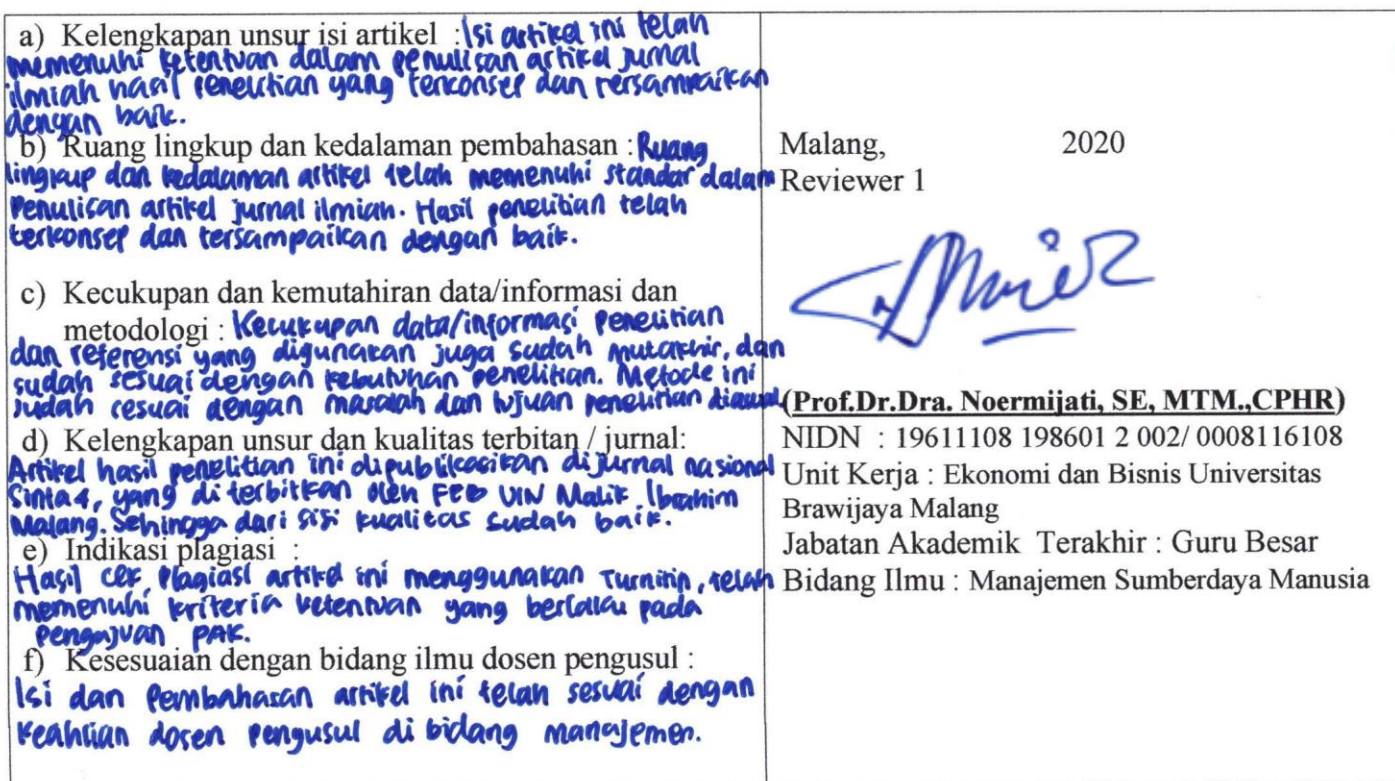 a) Kelengkapan unsur isi artikel : Isi artikel ini telah
memenuhi ketentuan dalam penulisan artikel jurnal
ilmiah hasil penelitian yang terkonsep dan tersampaikan
dengan baik.
b) Ruang lingkup dan kedalaman pembahasan : Ruang
lingkup dan kedalaman artikel telah memenuhi standar dalam
penulisan artikel jurnal ilmiah. Hasil penelitian telah
terkonsep dan tersampaikan dengan baik.
c) Kecukupan dan kemutahiran data/informasi dan
metodologi : Kecukupan data/informasi penelitian
dan referensi yang digunakan juga sudah mutakhir, dan
sudah sesuai dengan kebutuhan penelitian. Metode ini
sudah sesuai dengan masalah dan tujuan penelitian diawal
d) Kelengkapan unsur dan kualitas terbitan / jurnal:
Artikel hasil penelitian ini dipublikasikan di jurnal nasional
Sinta 4, yang di terbitkan oleh FEB UIN Malik Ibrahim
Malang. Sehingga dari sisi kualitas sudah baik.
e) Indikasi plagiasi :
Hasil cek plagiasi artikel ini menggunakan Turnitin, telah
memenuhi kriteria ketentuan yang berlaku pada
pengajuan PAK.
f) Kesesuaian dengan bidang ilmu dosen pengusul :
Isi dan Pembahasan artikel ini telah sesuai dengan
keahlian dosen pengusul di bidang manajemen.
Malang, 2020
Reviewer 1
(Prof.Dr.Dra. Noermijati, SE, MTM.,CPHR)
NIDN : 19611108 198601 2 002/ 0008116108
Unit Kerja : Ekonomi dan Bisnis Universitas
Brawijaya Malang
Jabatan Akademik Terakhir : Guru Besar
Bidang Ilmu : Manajemen Sumberdaya Manusia